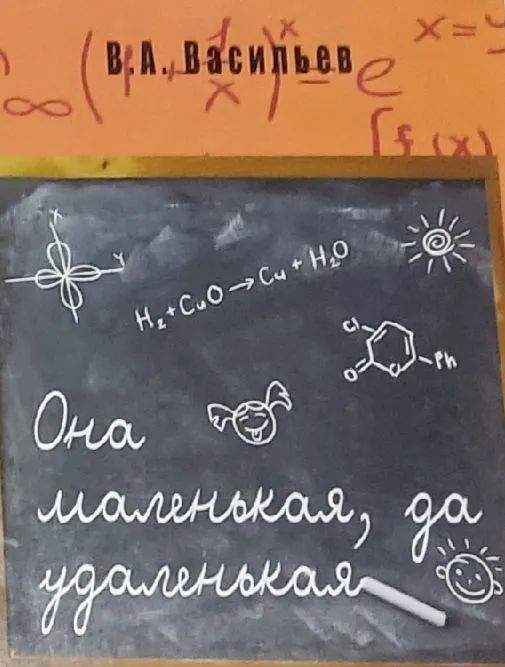 В.А. Васильев
∞ (1 + 1/x)^x = e
x = y
[f(x)
x
y
H₂+CuO→Cu+H₂O
Cl
O
O
Ph
Она
маленькая, да
удаленькая